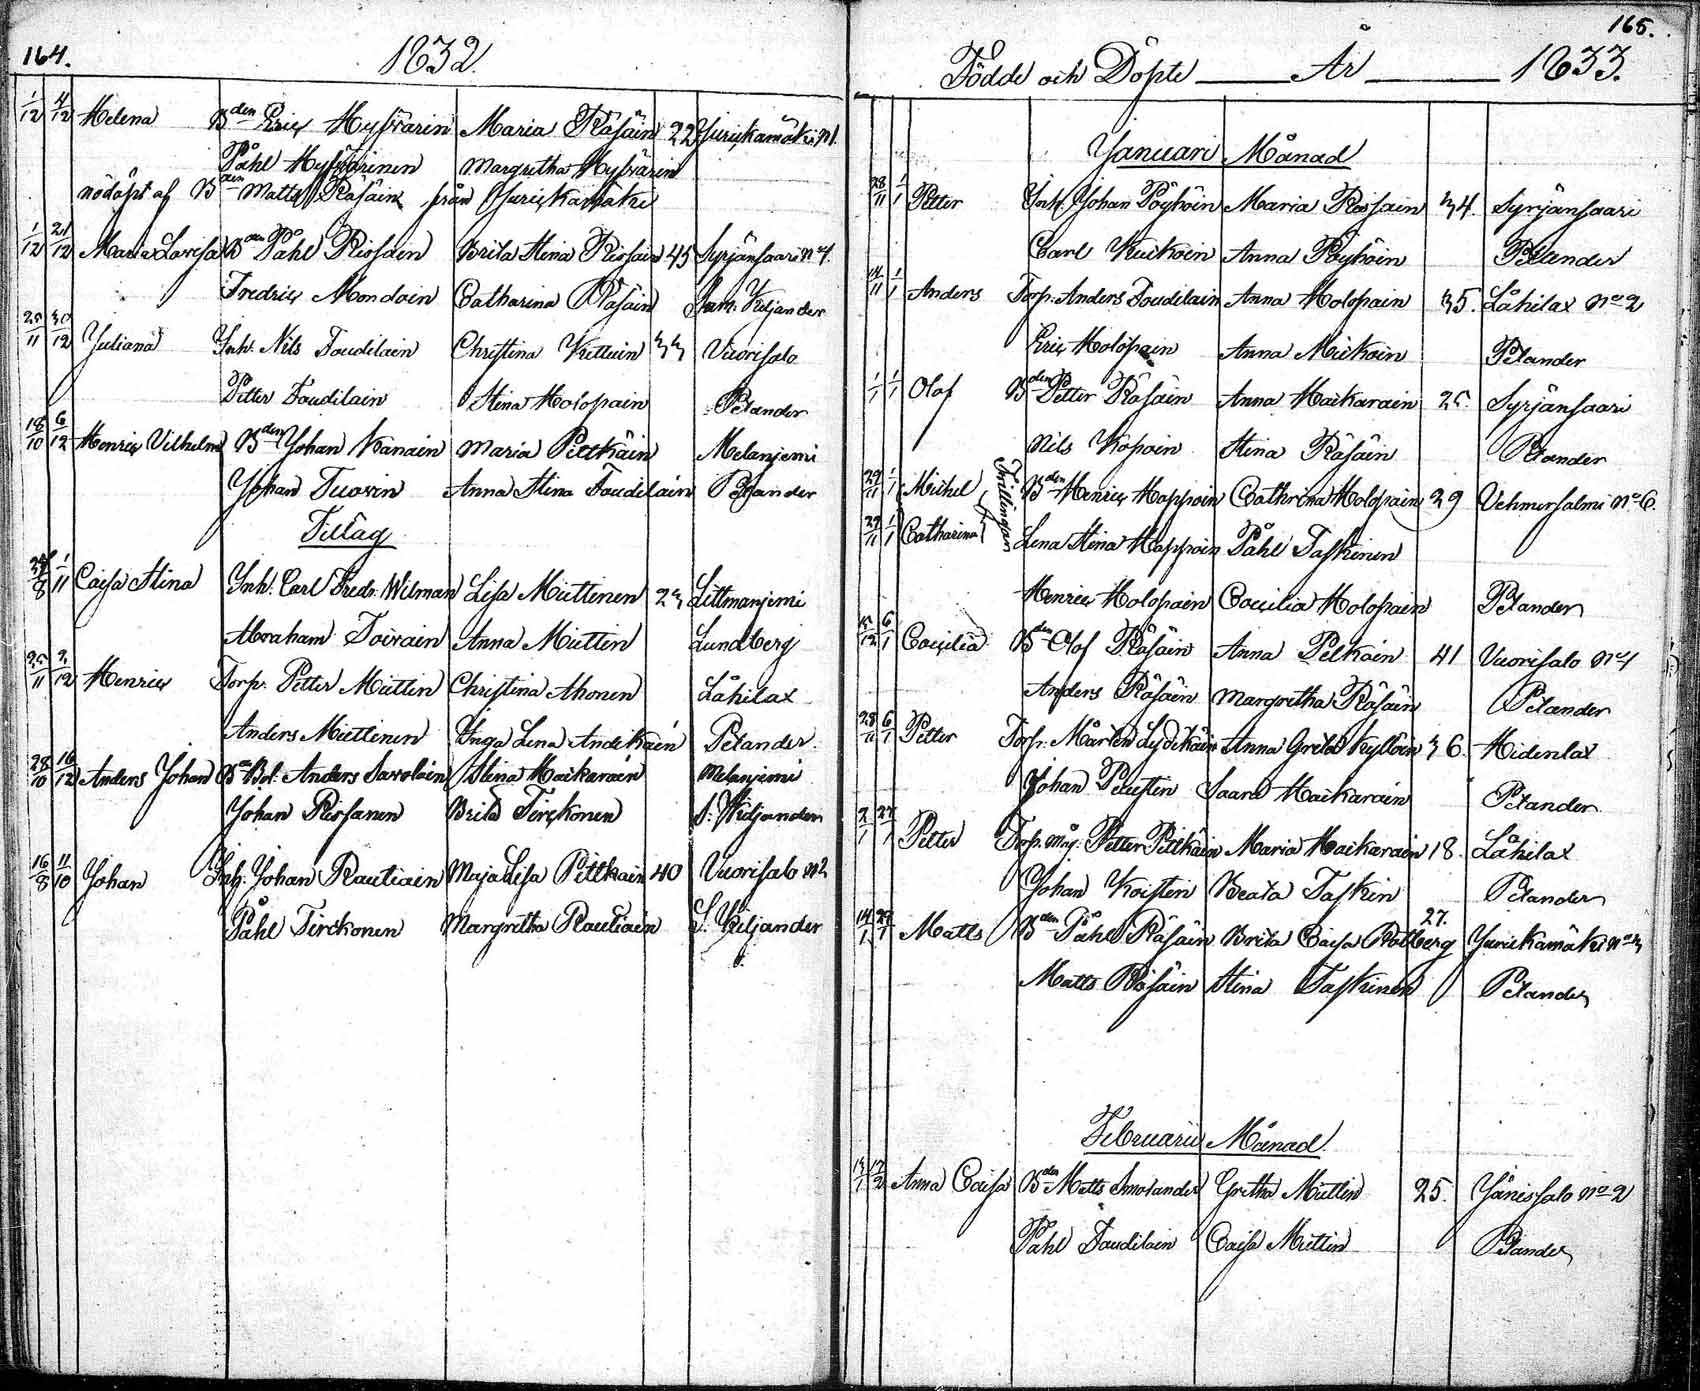 164.
1832.
1/12 4/12 Helena Bden Eric Hyfvärin Maria Räsäin 22 Jurickamäki N 1.
Påhl Hyfvärinen Margretha Hyfvärin
nödöpt af B Matts Räsäin från Jurickamäki
1/12 21/12 Maria Lovisa Bden Påhl Rissain Brita Stina Rissain 45 Syrjänsaari N 4.
Fredric Mondain Catharina Räsäin Sam. Kiljander
25/11 30/12 Juliana Inh. Nils Toudilain Christina Kettuin 33 Vuorisalo
Petter Toudilain Stina Holopain Pelander
18/10 6/12 Henric Vilhelm Bden Johan Kanain Maria Pittkäin Melanjemi
Johan Tuovin Anna Stina Toudilain Pelander
Tillåg
/8 1/11 Caisa Stina Inh. Carl Fredr. Wilman Lisa Miettinen 23 Littmanjemi
Abraham Toivain Anna Miettin Lundberg
25/11 2/12 Henric Torp. Petter Miettin Christina Ahonen Låhilax
Anders Miettinen Inga Lena Andikain Pelander
28/10 16/12 Anders Johan Anders Savolain Stina Haikarain Melanjemi
Johan Rissanen Brita Tirckonen S. Kiljander
16/8 11/10 Johan Inh. Johan Rautiain Maja Lisa Pittkain 40 Vuorisalo N 2
Påhl Tirckonen Margretha Rautiain S. Kiljander
165.
Födde och Döpte År 1833.
Januari Månad
28/11 1/1 Petter Inh. Johan Pöyhöin Maria Rissain 34. Syrjänsaari
Carl Kuikoin Anna Pöyhöin Pelander
14/11 1/1 Anders Torp. Anders Toudilain Anna Holopain 35. Låhilax No 2
Eric Holopain Anna Mickoin Pelander
1/1 1/1 Olof Bden Petter Räsäin Anna Haikarain 25. Syrjänsaari
Nils Kopoin Stina Räsäin Pelander
29/11 1/1 Michel Bden Henric Happoin Cathrina Holopain 29 Vehmersalmi No 6.
Trillingar
29/11 1/1 Catharina Lena Stina Happoin Påhl Taskinen
Henric Holopain Coecilia Holopain Pelander
/12 6/1 Coecilia Bden Olof Räsäin Anna Pelkäin 41 Vuorisalo No 4
Anders Räsäin Margretha Räsäin Pelander
28/11 6/1 Petter Torp. Mårten Lydikäin Anna Greta Kyllöin 36. Hidenlax
Johan Puustin Saara Haikarain Pelander
2/1 27/1 Petter Torp. måg. Petter Pittkäin Maria Haikarain 18. Låhilax
Johan Koistin Beata Taskin Pelander
14/1 29/1 Matts Bden Påhl Räsäin Brita Caisa Rotberg 27. Jurickamäki No 3
Matts Räsäin Stina Taskinen Pelander
Februarii Månad
/1 /2 Anna Caisa Bden Matts Smolander Gretha Miettin 25. Jänissalo No 2
Påhl Taudilain Caisa Miettin Pelander